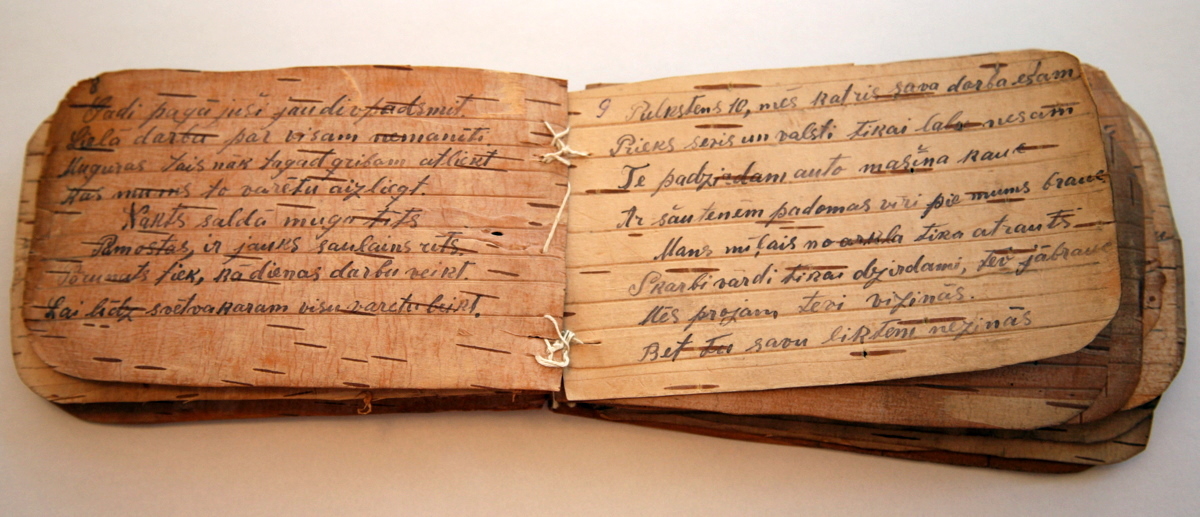 8
Gadi pagājuši jau divpadsmit.
Lielā darbu par visam nemanīti.
Muguras tais nāk tagad gribam atliekt
Kas mums to varētu aizliegt.
Nakts saldā mūgo tīts
Pamostas, ir jauks saulains rīts,
tiek, kā dienas darbu veikt.
Lai līdz svētvakaram visu varētu beikt.
9 Pulkstens 10, mēs katris sava darbā esam
Prieks sevis un valsti tikai labu nesam
Te padzirdam auto mašīna kauc
Ar šautenēm padomas vīri pie mums brauc
Mans mīļais no arkla tika atrauts
Skarbi vārdi tikai dzirdami, tev jābrauc
Mēs projām tevi vizinās.
Bet tu savu likteni nezinās